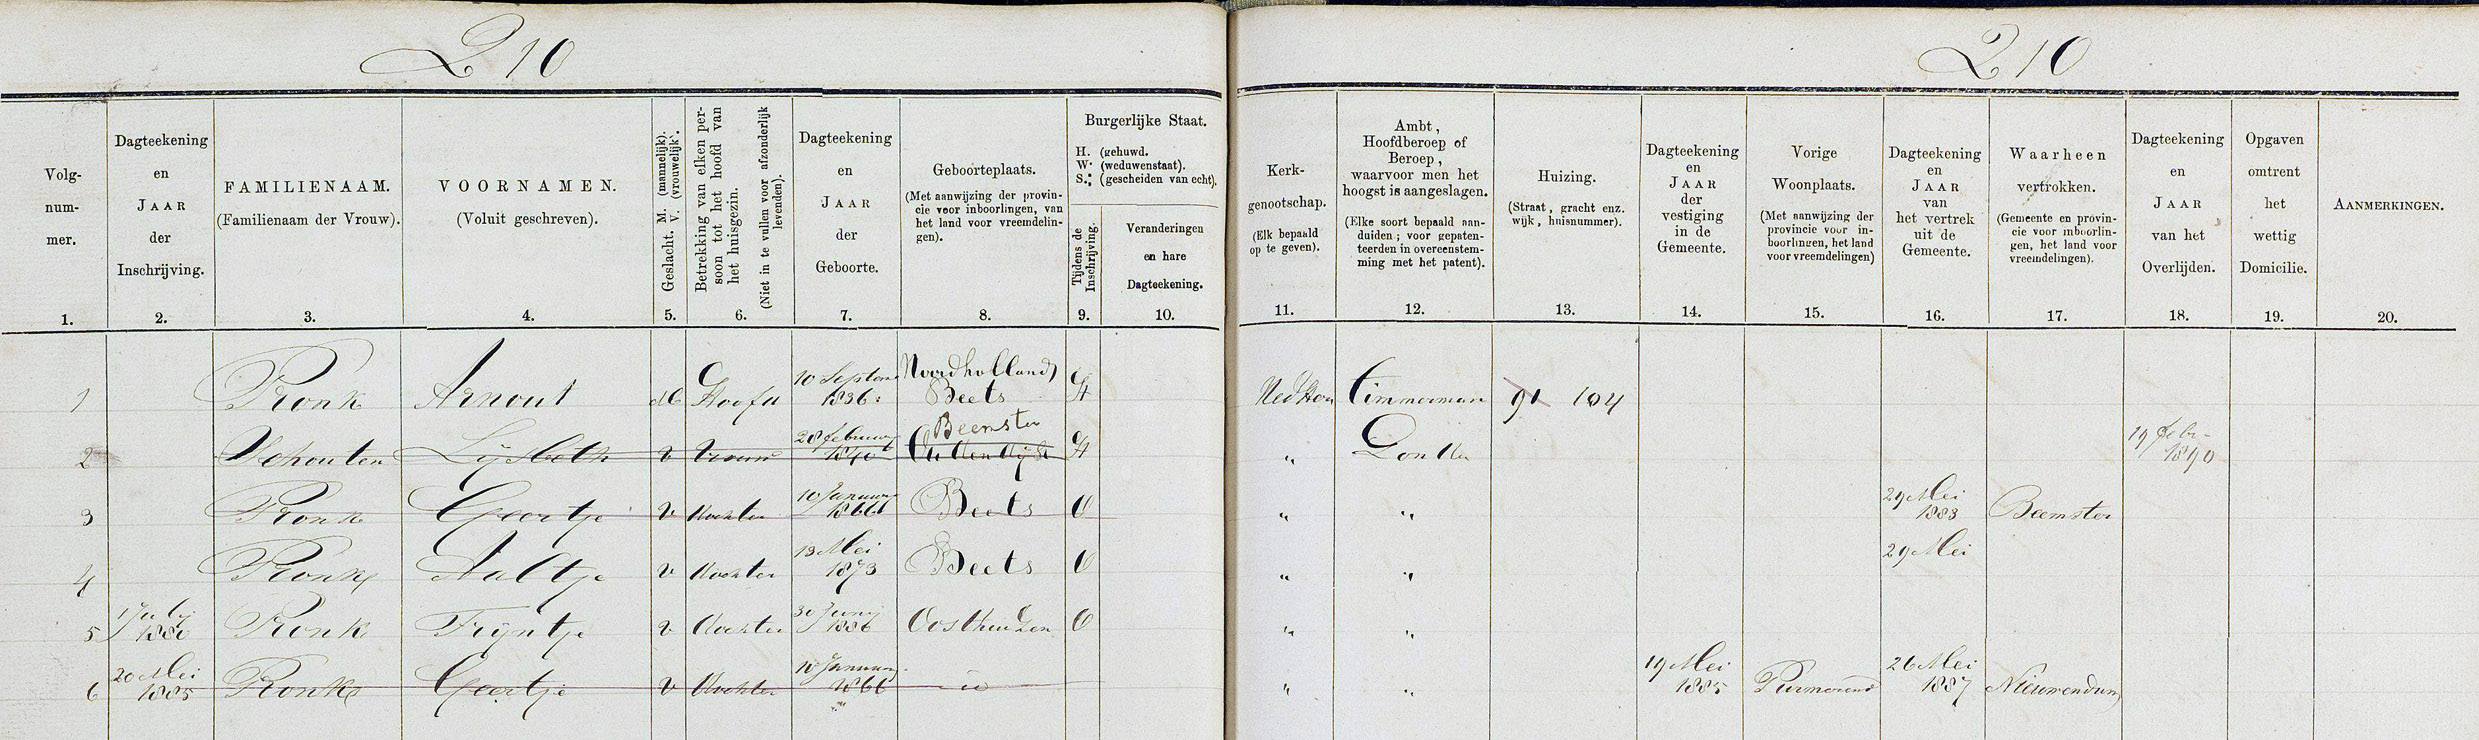 210
210
Volg-
num-
mer.
Dagteekening
en
JAAR
der
Inschrijving.
FAMILIENAAM.
(Familienaam der Vrouw).
VOORNAMEN.
(Voluit geschreven).
Geslacht. M. (mannelijk).
V. (vrouwelijk).
Betrekking van elken per-
soon tot het hoofd van
het huisgezin.
(Niet in te vullen voor afzonderlijk
levenden).
Dagteekening
en
JAAR
der
Geboorte.
Geboorteplaats.
(Met aanwijzing der provin-
cie voor inboorlingen, van
het land voor vreemdelin-
gen).
Burgerlijke Staat.
H. (gehuwd.
W. (weduwenstaat).
S. (gescheiden van echt).
Tijdens de
Inschrijving.
Veranderingen
en hare
Dagteekening.
Kerk-
genootschap.
(Elk bepaald
op te geven).
Ambt,
Hoofdberoep of
Beroep,
waarvoor men het
hoogst is aangeslagen.
(Elke soort bepaald aan-
duiden; voor gepaten-
teerden in overeenstem-
ming met het patent).
Huizing.
(Straat, gracht enz.
wijk, huisnummer).
Dagteekening
en
JAAR
der
vestiging
in de
Gemeente.
Vorige
Woonplaats.
(Met aanwijzing der
provincie voor in-
boorlingen, het land
voor vreemdelingen)
Dagteekening
en
JAAR
van
het vertrek
uit de
Gemeente.
Waarheen
vertrokken.
(Gemeente en provin-
cie voor inboorlin-
gen, het land voor
vreemdelingen).
Dagteekening
en
JAAR
van het
Overlijden.
Opgaven
omtrent
het
wettig
Domicilie.
AANMERKINGEN.
1. 2. 3. 4. 5. 6. 7. 8. 9. 10. 11. 12. 13. 14. 15. 16. 17. 18. 19. 20.
1 Pronk Arnout M Hoofd 10 Septem 1836 Noordholland Beets H Ned Her Timmerman 91 104
2 Schouten Lijsbeth V Vrouw 28 februarij 1840 Beemster H " Zonder 19 febr. 1890
3 Pronk Geertje V dochter 10 Januarij 1866 Beets O " " 29 Mei 1883 Beemster
4 Pronk Aaltje V dochter 13 Mei 1873 Beets O " " 29 Mei
5 1 July 1880 Pronk Trijntje V dochter 30 Junij 1886 Oosthuizen O " "
6 20 Mei 1885 Pronk Geertje V dochter 10 Januarij 1866 " " 19 Mei 1885 Purmerend 26 Mei 1887 Nieuwendam